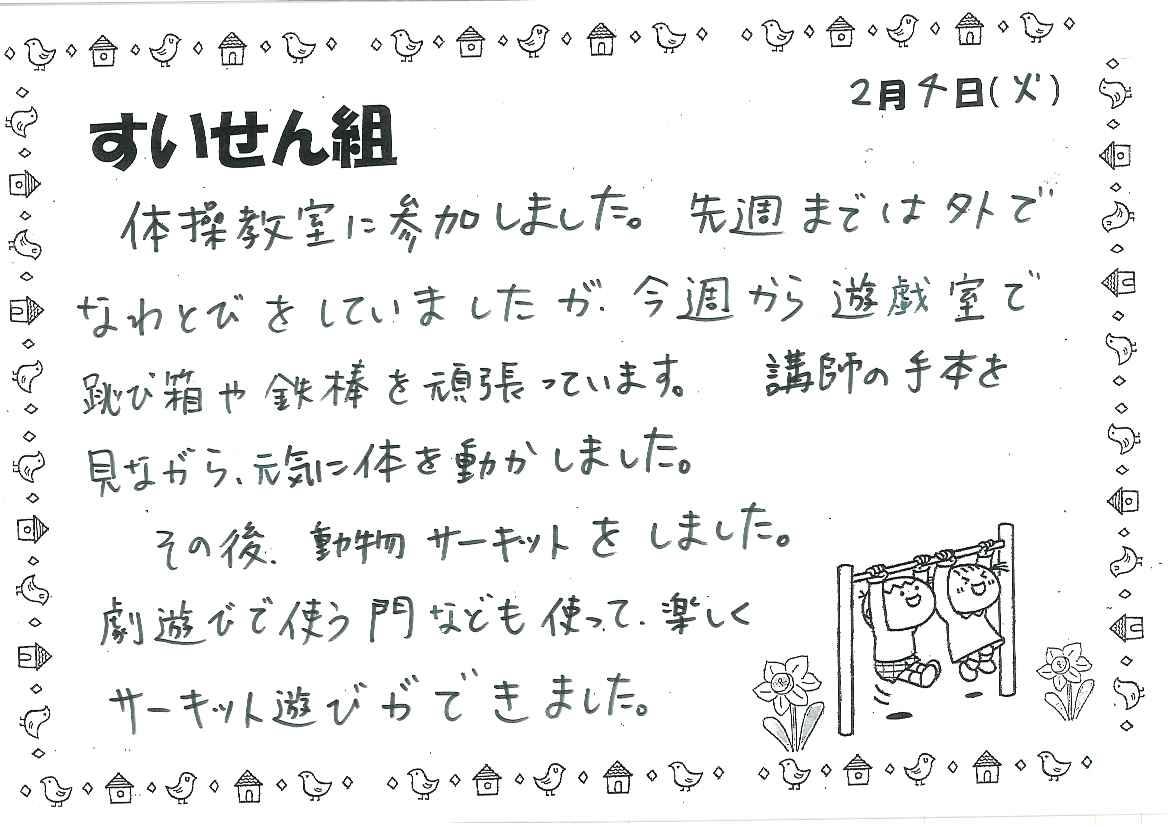 2月4日(火)
すいせん組
体操教室に参加しました。先週までは外で
なわとびをしていましたが、今週から遊戯室で
跳び箱や鉄棒を頑張っています。 講師の手本を
見ながら、元気に体を動かしました。
その後、動物サーキットをしました。
劇遊びで使う門なども使って、楽しく
サーキット遊びができました。